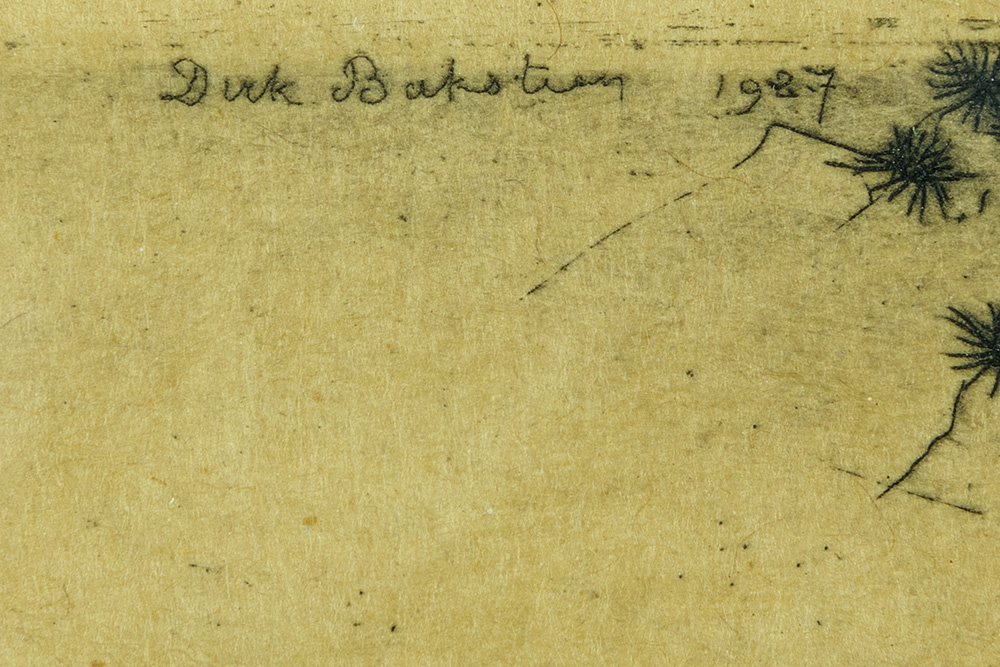 Dirk Baksteen 1927